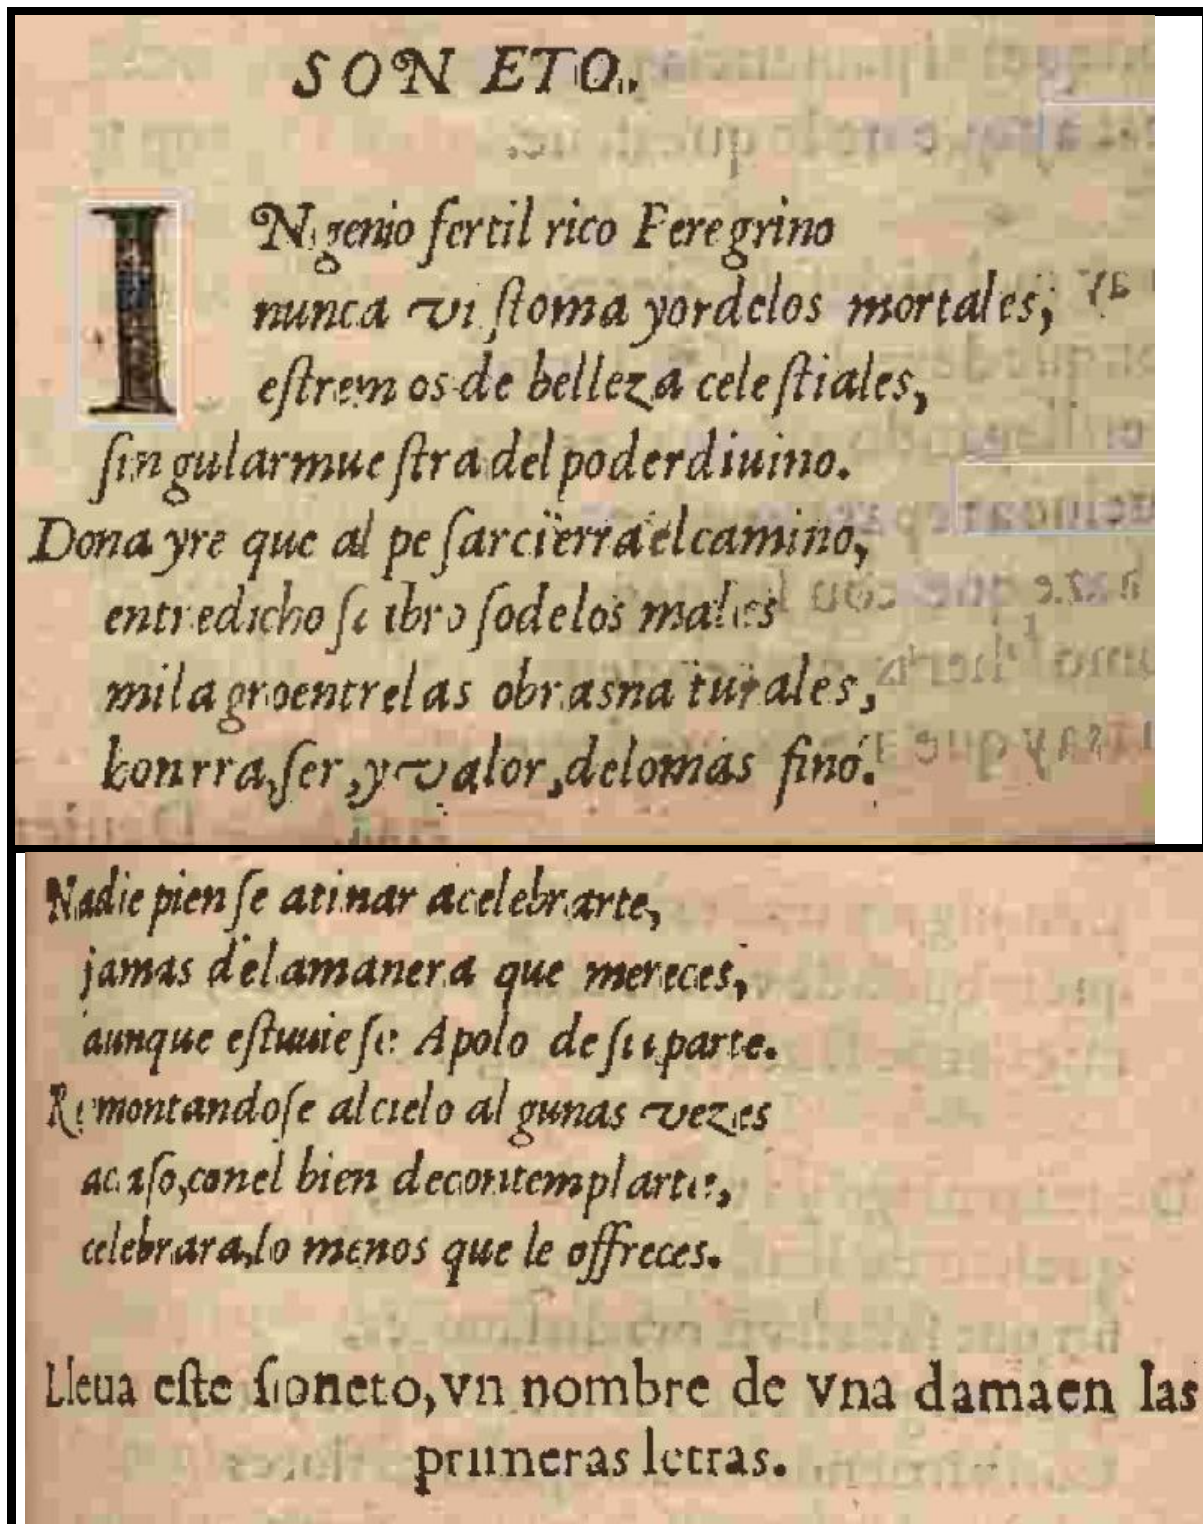 SONETO.
INgenio fertil rico Peregrino
nunca viſto mayor delos mortales,
eſtremos de belleza celeſtiales,
ſingular mueſtra del poder diuino.
Donayre que al peſar cierra el camino,
entredicho ſabroſo delos males
milagro entre las obras naturales,
honrra, ſer, y valor, delo mas fino.
Nadie pienſe atinar a celebrarte,
jamas dela manera que mereces,
aunque eſtuuieſe Apolo de ſu parte.
Remontandoſe al cielo algunas vezes
acaſo, con el bien de contemplarte,
celebrara, lo menos que le offreces.
Lleua eſte ſoneto, vn nombre de vna dama en las
primeras letras.